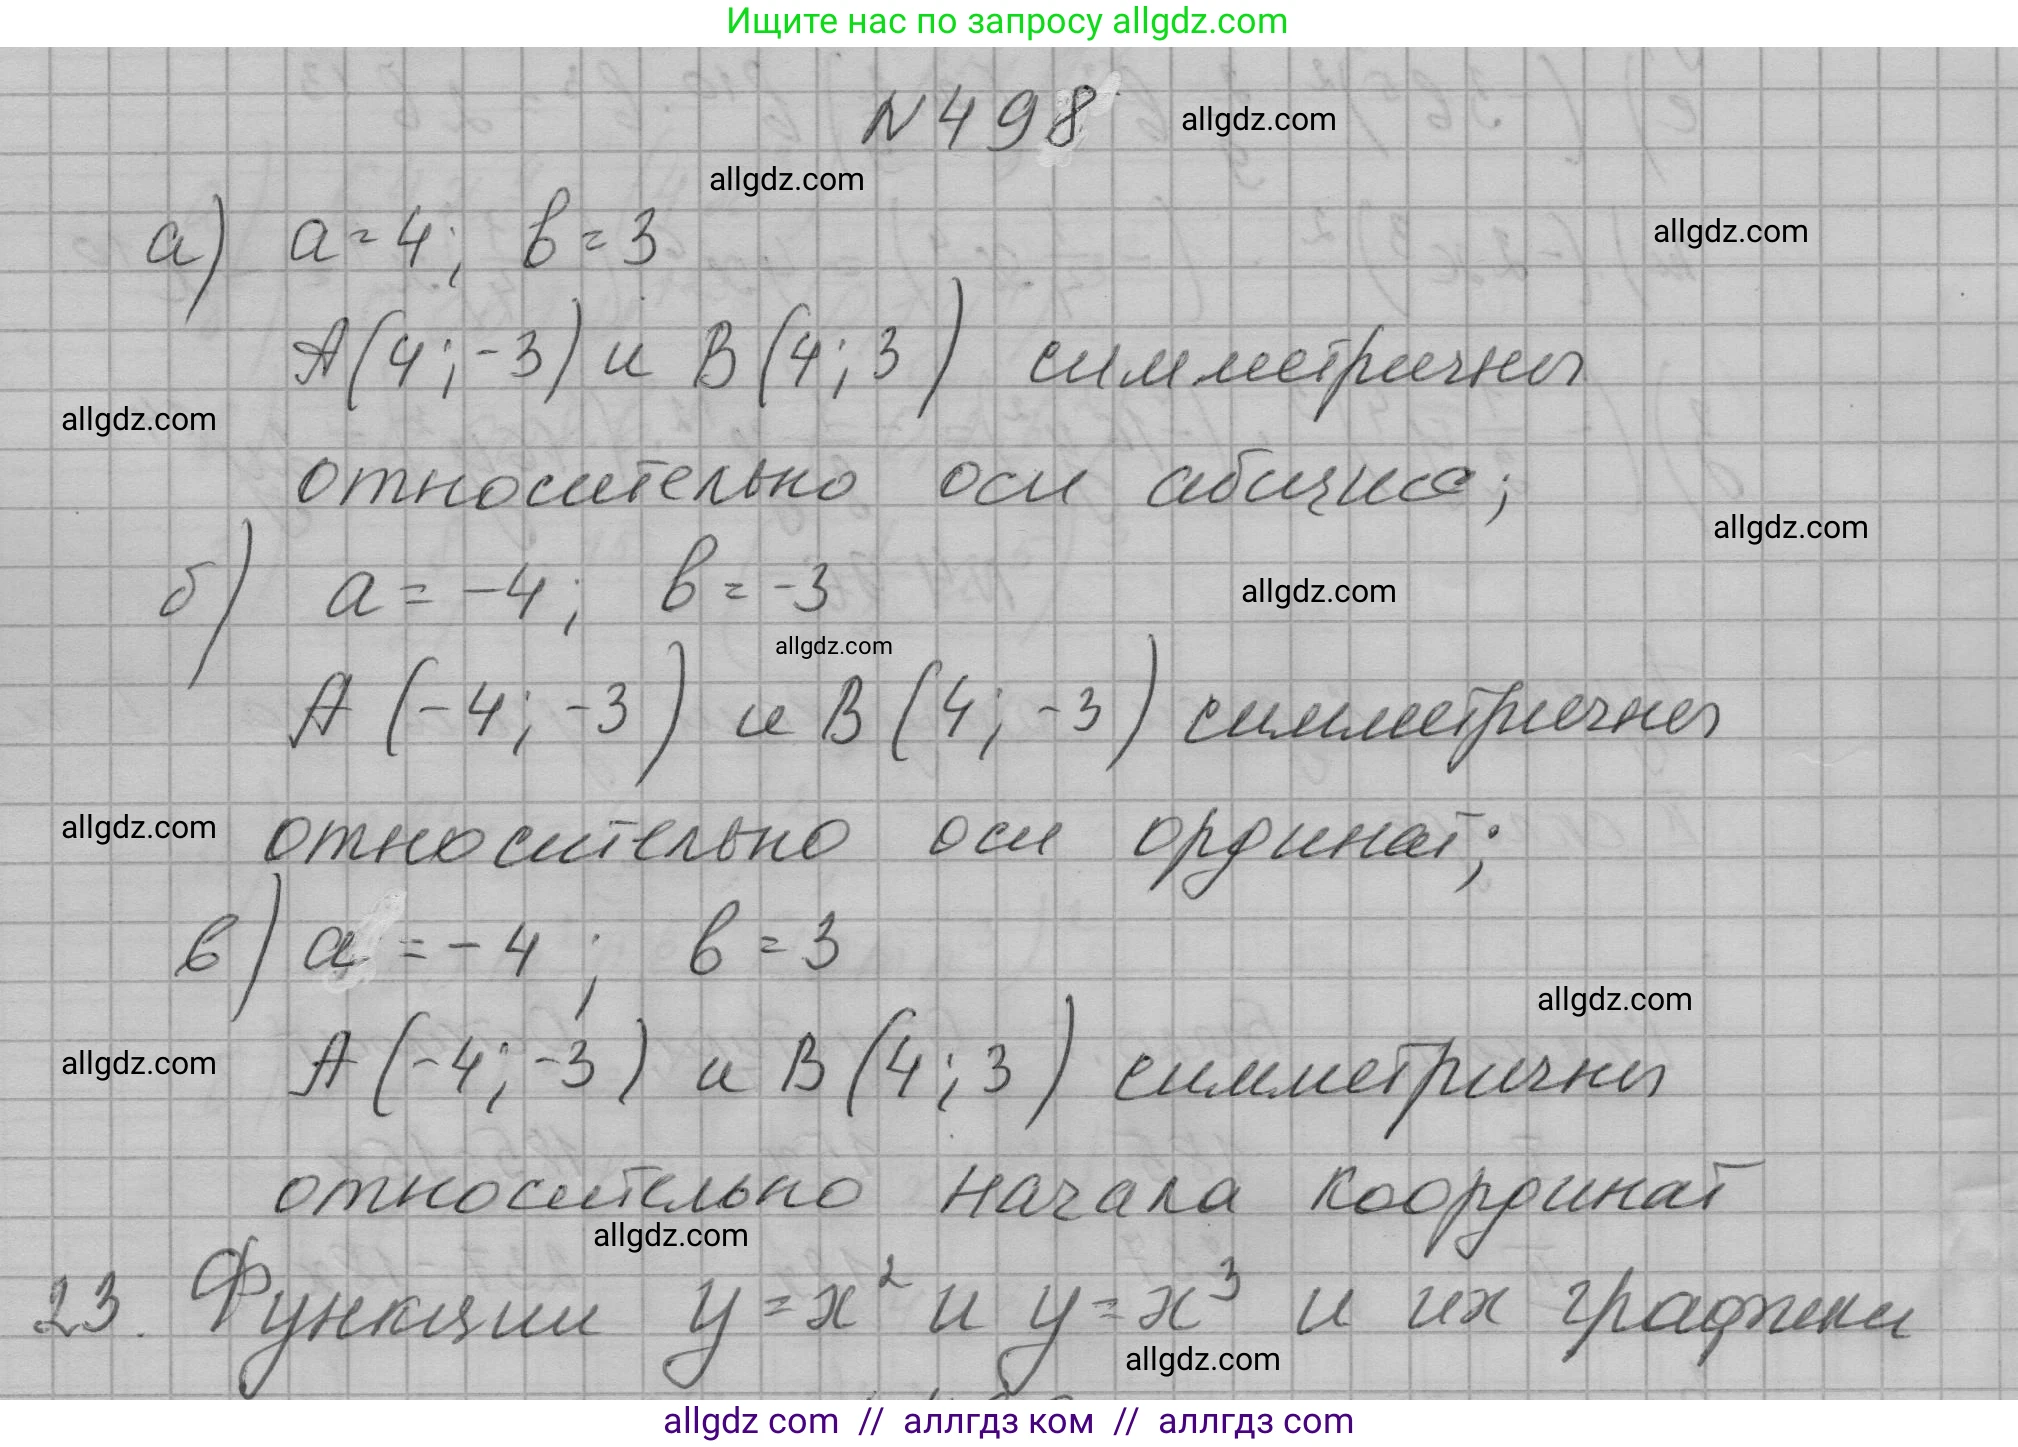 Ищите нас по запросу allgdz.com
N498 allgdz.com
allgdz.com
а) a=4; b=3 allgdz.com
A(4;-3) и B(4;3) симметричны
allgdz.com
относительно оси абсцисс;
allgdz.com
б) a=-4; b=-3 allgdz.com
allgdz.com
A(-4;-3) и B(4;-3) симметричны
allgdz.com относительно оси ординат;
в) a=-4; b=3
allgdz.com
allgdz.com A(-4;-3) и B(4;3) симметричны
относительно начала координат
allgdz.com
23. Функции y=x² и y=x³ и их графики
allgdz.com
allgdz com // аллгдз ком // аллгдз com